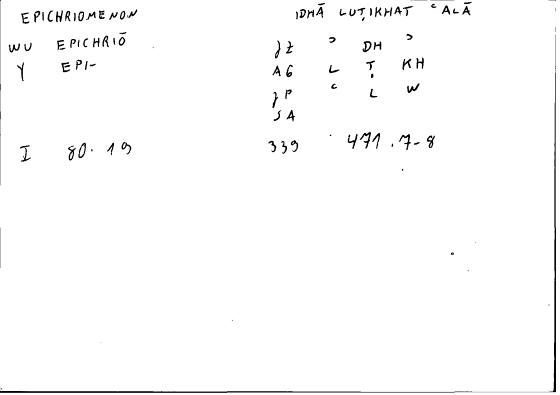 EPICHRIOMENON
WU EPICHRIŌ
Y EPI-
I 80.19
IDHĀ LUṬIKHAT ʿALĀ
JZ ʾ DH ʾ
AG L Ṭ KH
JP ʿ L W
SA
339 471.7-8